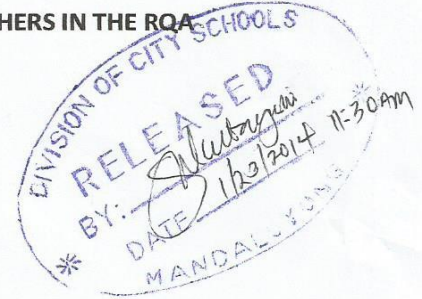 HERS IN THE RQA
DIVISION OF CITY SCHOOLS
RELEASED
BY:
DATE 1/23/2014 11:30 AM
MANDALUYONG